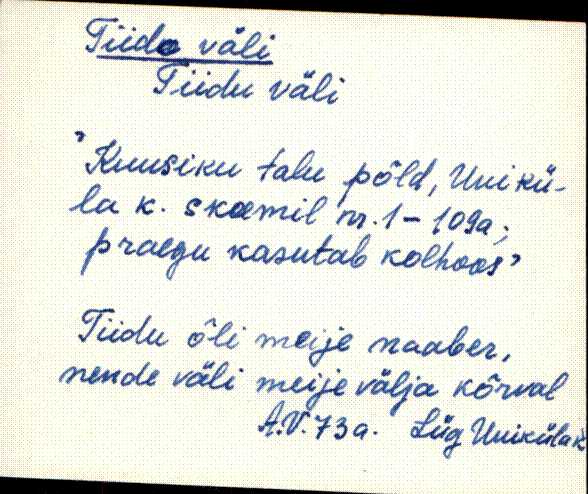 Tiido väli
Tiidu väli
"Kuusiku talu põld, Unikü-
la k. skeemil nr. 1 - 109a;
praegu kasutab kolhoos"
Tiidu õli meije naaber,
nende väli meije välja kõrval
A.V. 73a. Lüg Uniküla k